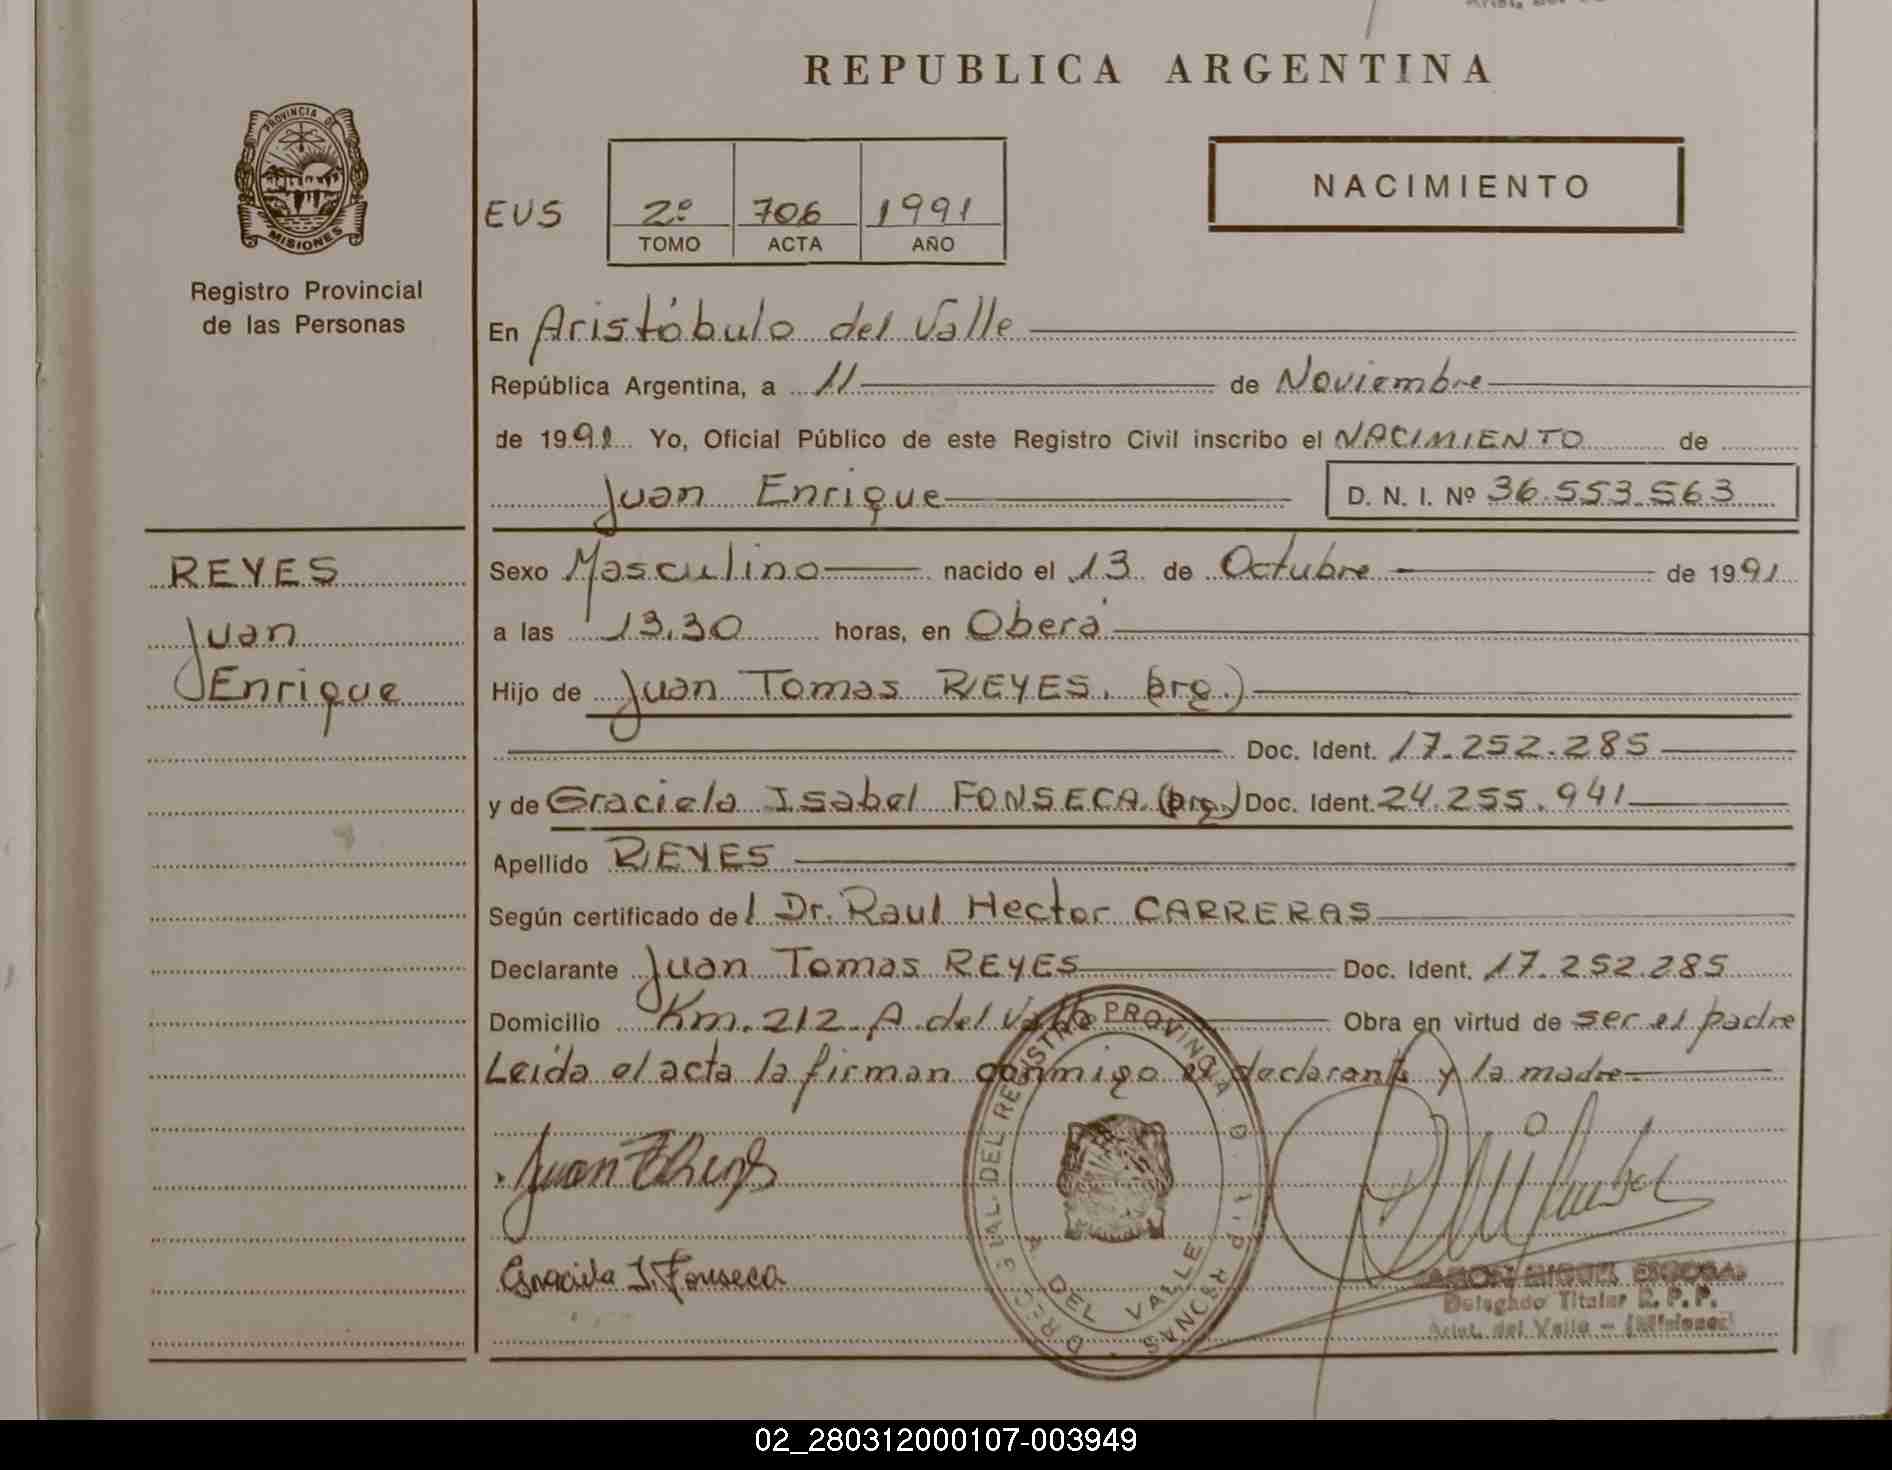 REPUBLICA ARGENTINA
PROVINCIA DE
MISIONES
Registro Provincial
de las Personas
NACIMIENTO
EUS 2º 706 1991
TOMO ACTA AÑO
En Aristóbulo del Valle
República Argentina, a 11 de Noviembre
de 1991 Yo, Oficial Público de este Registro Civil inscribo el NACIMIENTO de
Juan Enrique D. N. I. Nº 36.553.563
REYES
Juan
Enrique
Sexo Masculino nacido el 13 de Octubre de 1991
a las 13.30 horas, en Oberá
Hijo de Juan Tomas REYES. (arg.)
Doc. Ident. 17.252.285
y de Graciela Isabel FONSECA (arg.) Doc. Ident. 24.255.941
Apellido REYES
Según certificado del Dr. Raul Hector CARRERAS
Declarante Juan Tomas REYES Doc. Ident. 17.252.285
Domicilio Km. 212 A. del Valle Obra en virtud de ser el padre
Leida el acta la firman conmigo el declarante y la madre
Graciela I. Fonseca
DEL REGISTRO PROVINCIAL D
A DEL VALLE
MIGUEL
Delegado Titular R. P. P.
Arist. del Valle - (Misiones)
02_280312000107-003949